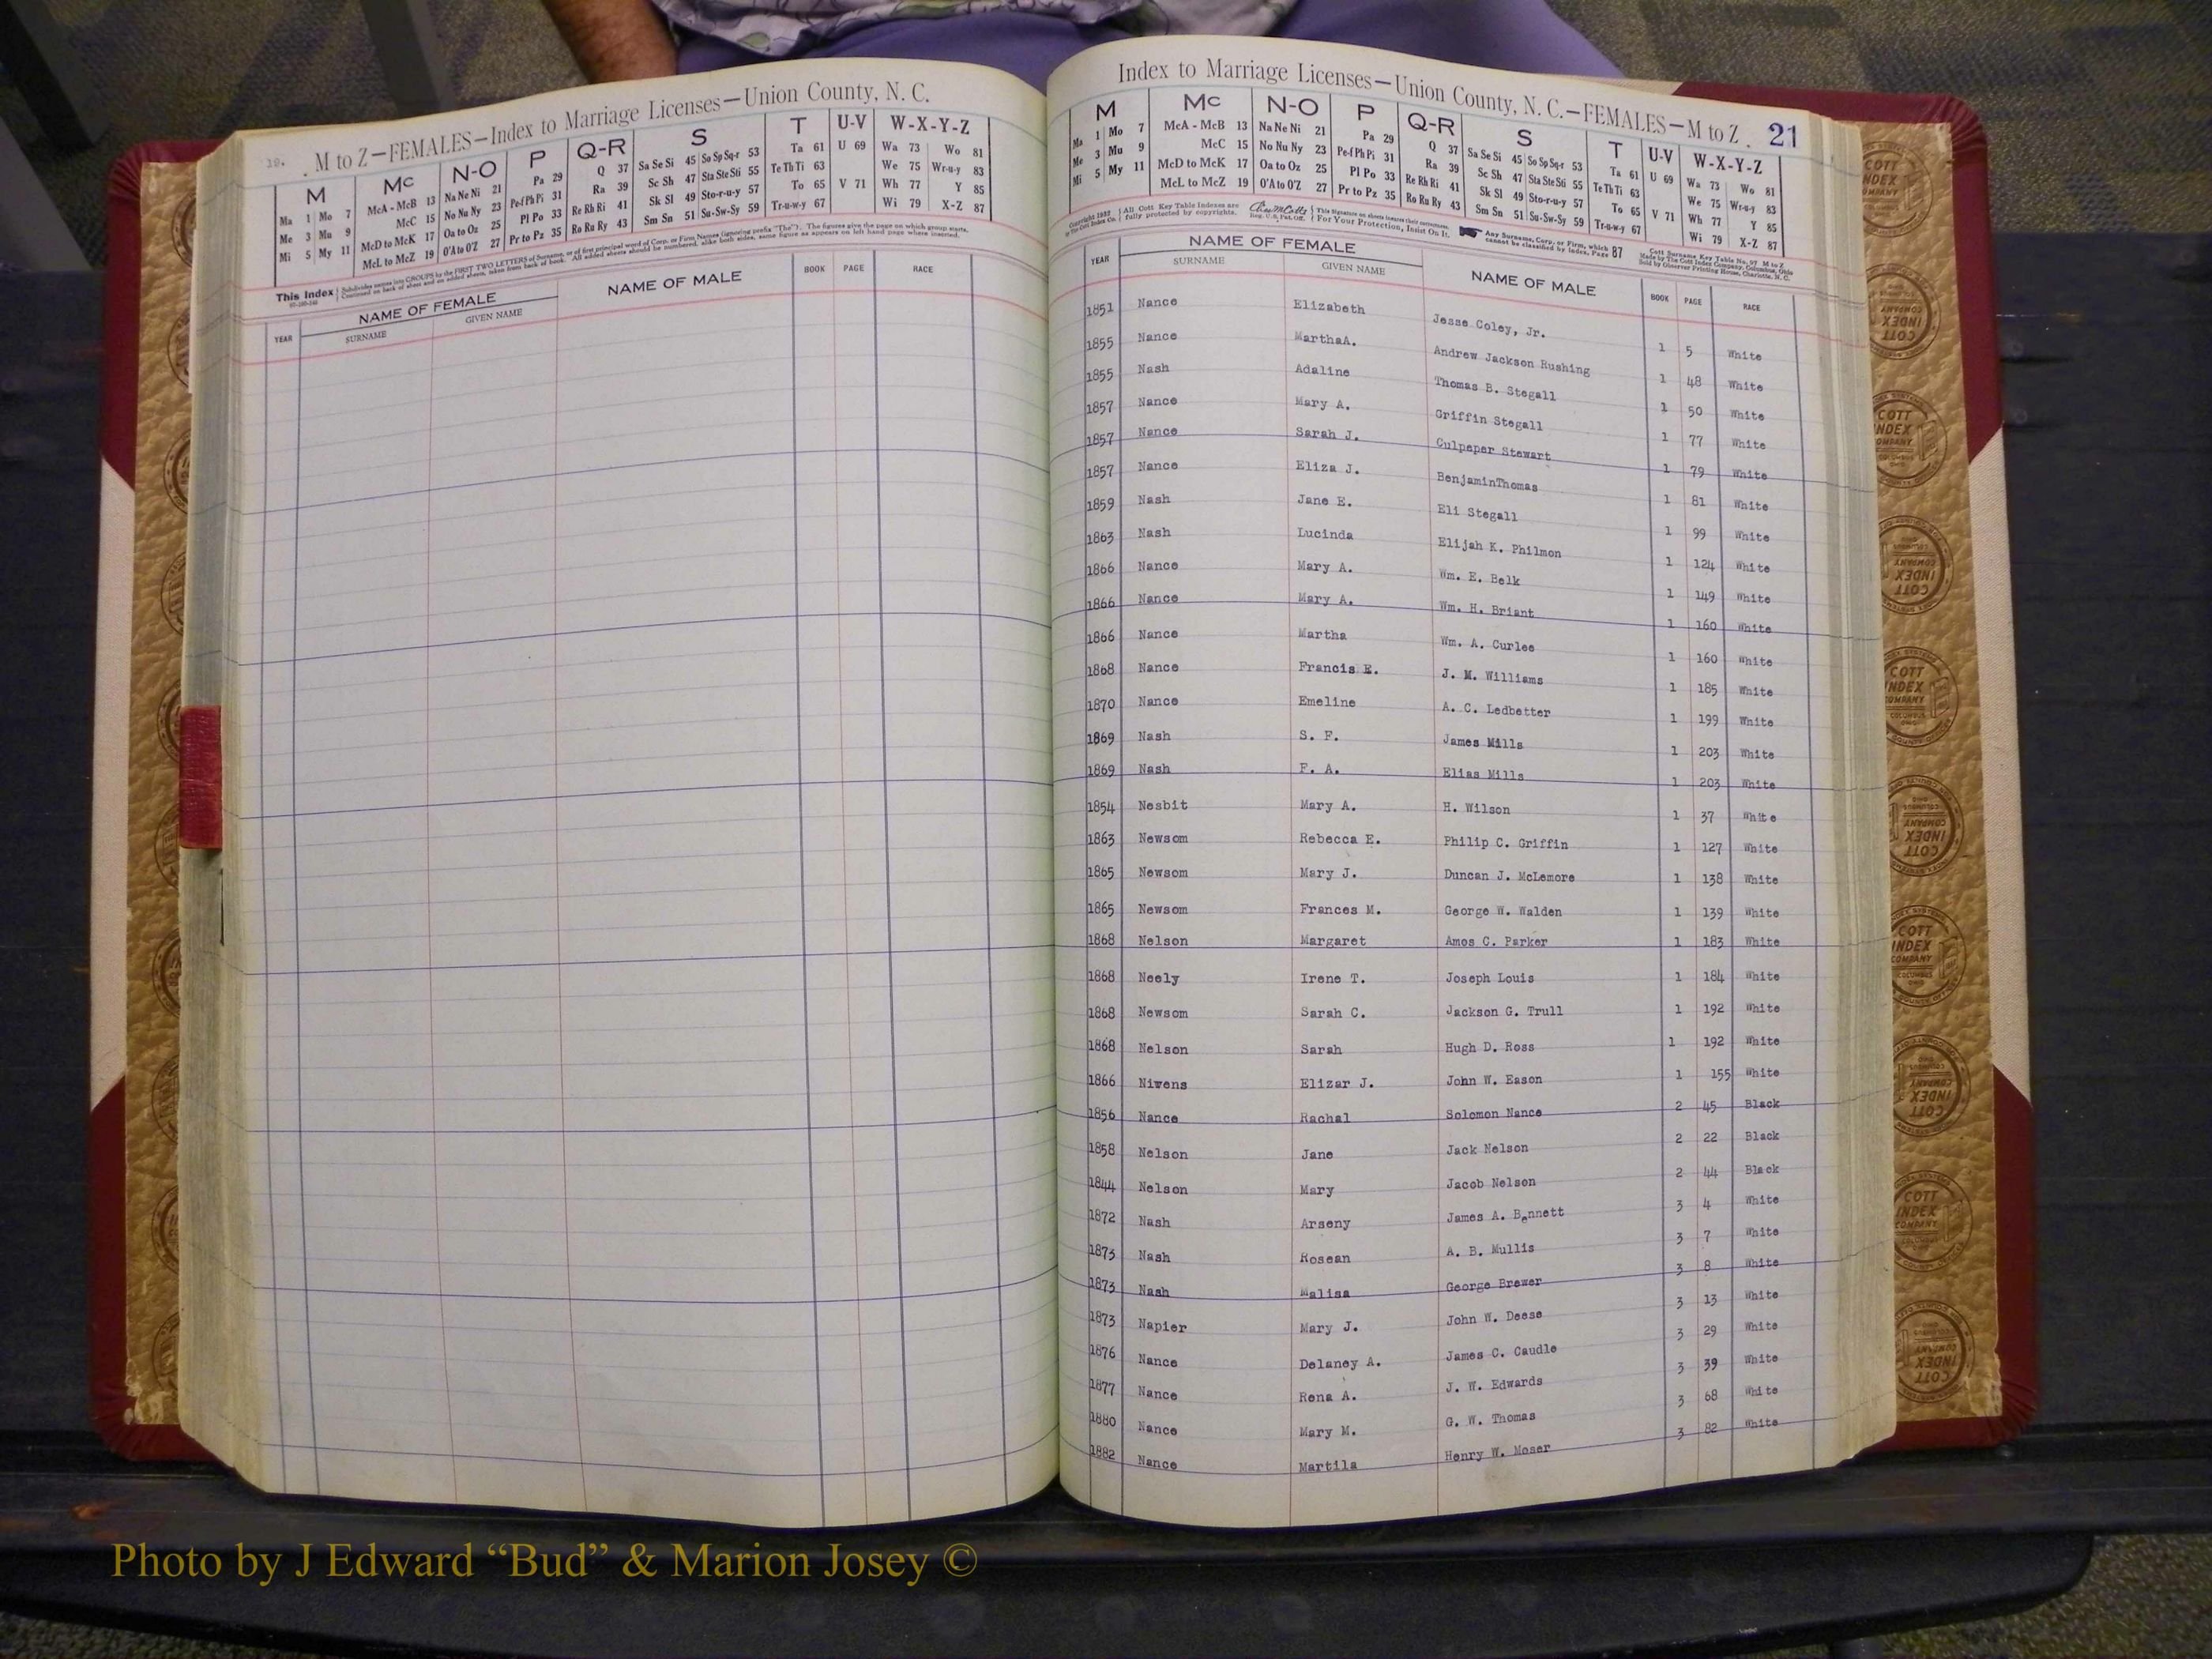 19. M to Z—FEMALES—Index to Marriage Licenses—Union County, N. C.
M Mc N-O P Q-R S T U-V W-X-Y-Z
Ma 1 Mo 7 McA - McB 13 Na Ne Ni 21 Pa 29 Q 37 Sa Se Si 45 So Sp Sq-r 53 Ta 61 U 69 Wa 73 Wo 81
Me 3 Mu 9 McC 15 No Nu Ny 23 Pe-f Ph Pi 31 Ra 39 Sc Sh 47 Sta Ste Sti 55 Te Th Ti 63 We 75 Wr-u-y 83
Mi 5 My 11 McD to McK 17 Oa to Oz 25 Pl Po 33 Re Rh Ri 41 Sk Sl 49 Sto-r-u-y 57 To 65 V 71 Wh 77 Y 85
McL to McZ 19 O'A to O'Z 27 Pr to Pz 35 Ro Ru Ry 43 Sm Sn 51 Su-Sw-Sy 59 Tr-u-w-y 67 Wi 79 X-Z 87
This Index Subdivides names into GROUPS by the FIRST TWO LETTERS of Surname, or of first principal word of Corp. or Firm Names (ignoring prefix "The"). The figures give the page on which group starts.
Continued on back of sheet and on added sheets, taken from back of book. All added sheets should be numbered, alike both sides, same figure as appears on left hand page where inserted.
YEAR NAME OF FEMALE SURNAME GIVEN NAME NAME OF MALE BOOK PAGE RACE
Index to Marriage Licenses—Union County, N. C.—FEMALES—M to Z 21
M Mc N-O P Q-R S T U-V W-X-Y-Z
Ma 1 Mo 7 McA - McB 13 Na Ne Ni 21 Pa 29 Q 37 Sa Se Si 45 So Sp Sq-r 53 Ta 61 U 69 Wa 73 Wo 81
Me 3 Mu 9 McC 15 No Nu Ny 23 Pe-f Ph Pi 31 Ra 39 Sc Sh 47 Sta Ste Sti 55 Te Th Ti 63 We 75 Wr-u-y 83
Mi 5 My 11 McD to McK 17 Oa to Oz 25 Pl Po 33 Re Rh Ri 41 Sk Sl 49 Sto-r-u-y 57 To 65 V 71 Wh 77 Y 85
McL to McZ 19 O'A to O'Z 27 Pr to Pz 35 Ro Ru Ry 43 Sm Sn 51 Su-Sw-Sy 59 Tr-u-w-y 67 Wi 79 X-Z 87
All Cott Key Table Indexes are fully protected by copyrights. For Your Protection, Insist On It. Any Surname, Corp. or Firm, which cannot be classified by Index, Page 87
YEAR NAME OF FEMALE SURNAME GIVEN NAME NAME OF MALE BOOK PAGE RACE
1851 Nance Elizabeth Jesse Coley, Jr. 1 5 White
1855 Nance MarthaA. Andrew Jackson Rushing 1 48 White
1855 Nash Adaline Thomas B. Stegall 1 50 White
1857 Nance Mary A. Griffin Stegall 1 77 White
1857 Nance Sarah J. Culpeper Stewart 1 79 White
1857 Nance Eliza J. BenjaminThomas 1 81 White
1859 Nash Jane E. Eli Stegall 1 99 White
1863 Nash Lucinda Elijah K. Philmon 1 124 White
1866 Nance Mary A. Wm. E. Belk 1 149 White
1866 Nance Mary A. Wm. H. Briant 1 160 White
1866 Nance Martha Wm. A. Curlee 1 160 White
1868 Nance Francis E. J. M. Williams 1 185 White
1870 Nance Emeline A. C. Ledbetter 1 199 White
1869 Nash S. F. James Mills 1 203 White
1869 Nash F. A. Elias Mills 1 203 White
1854 Nesbit Mary A. H. Wilson 1 37 White
1863 Newsom Rebecca E. Philip C. Griffin 1 127 White
1865 Newsom Mary J. Duncan J. McLemore 1 138 White
1865 Newsom Frances M. George W. Walden 1 139 White
1868 Nelson Margaret Amos C. Parker 1 183 White
1868 Neely Irene T. Joseph Louis 1 184 White
1868 Newsom Sarah C. Jackson G. Trull 1 192 White
1868 Nelson Sarah Hugh D. Ross 1 192 White
1866 Nivens Elizar J. John W. Eason 1 155 White
1856 Nance Rachal Solomon Nance 2 45 Black
1858 Nelson Jane Jack Nelson 2 22 Black
1844 Nelson Mary Jacob Nelson 2 44 Black
1872 Nash Arseny James A. Bennett 3 4 White
1873 Nash Rosean A. B. Mullis 3 7 White
1873 Nash Malisa George Brewer 3 8 White
1873 Napier Mary J. John W. Deese 3 13 White
1876 Nance Delaney A. James C. Caudle 3 29 White
1877 Nance Rena A. J. W. Edwards 3 39 White
1880 Nance Mary M. G. W. Thomas 3 68 White
1882 Nance Martila Henry W. Moser 3 82 White
COTT INDEX COMPANY
Photo by J Edward “Bud” & Marion Josey ©